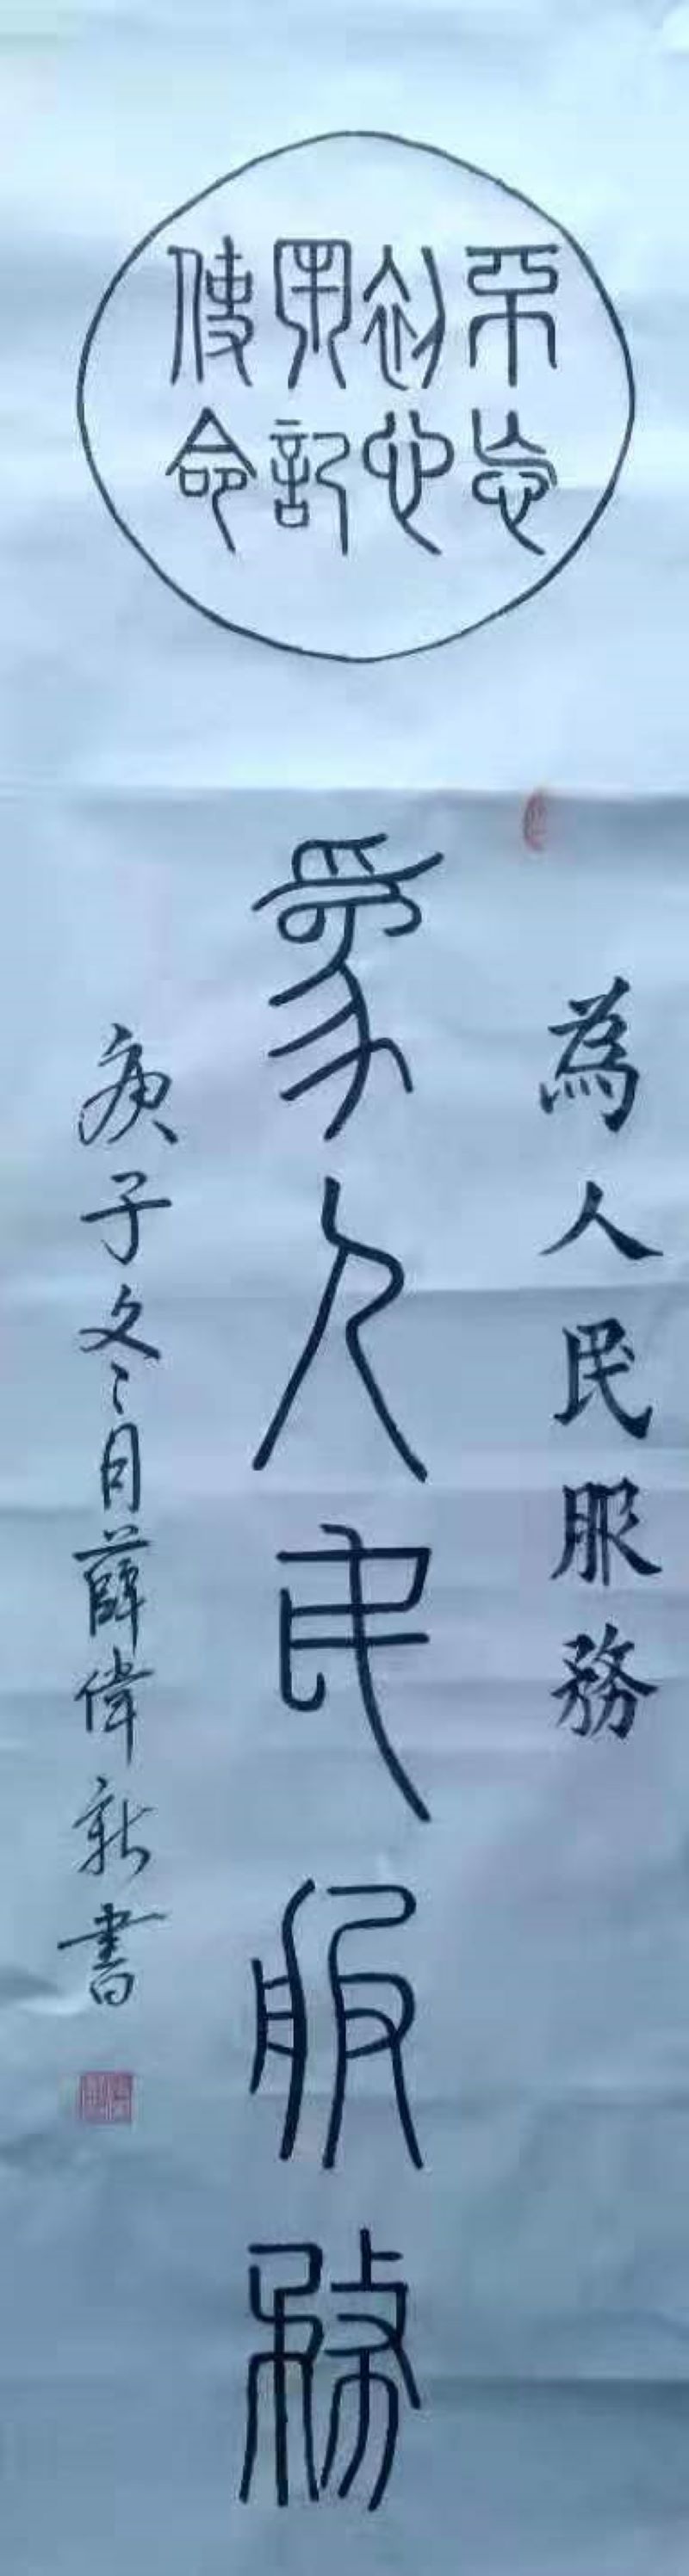 不忘
初心
牢記
使命
為人民服務
為人民服務
庚子冬月薛偉新書